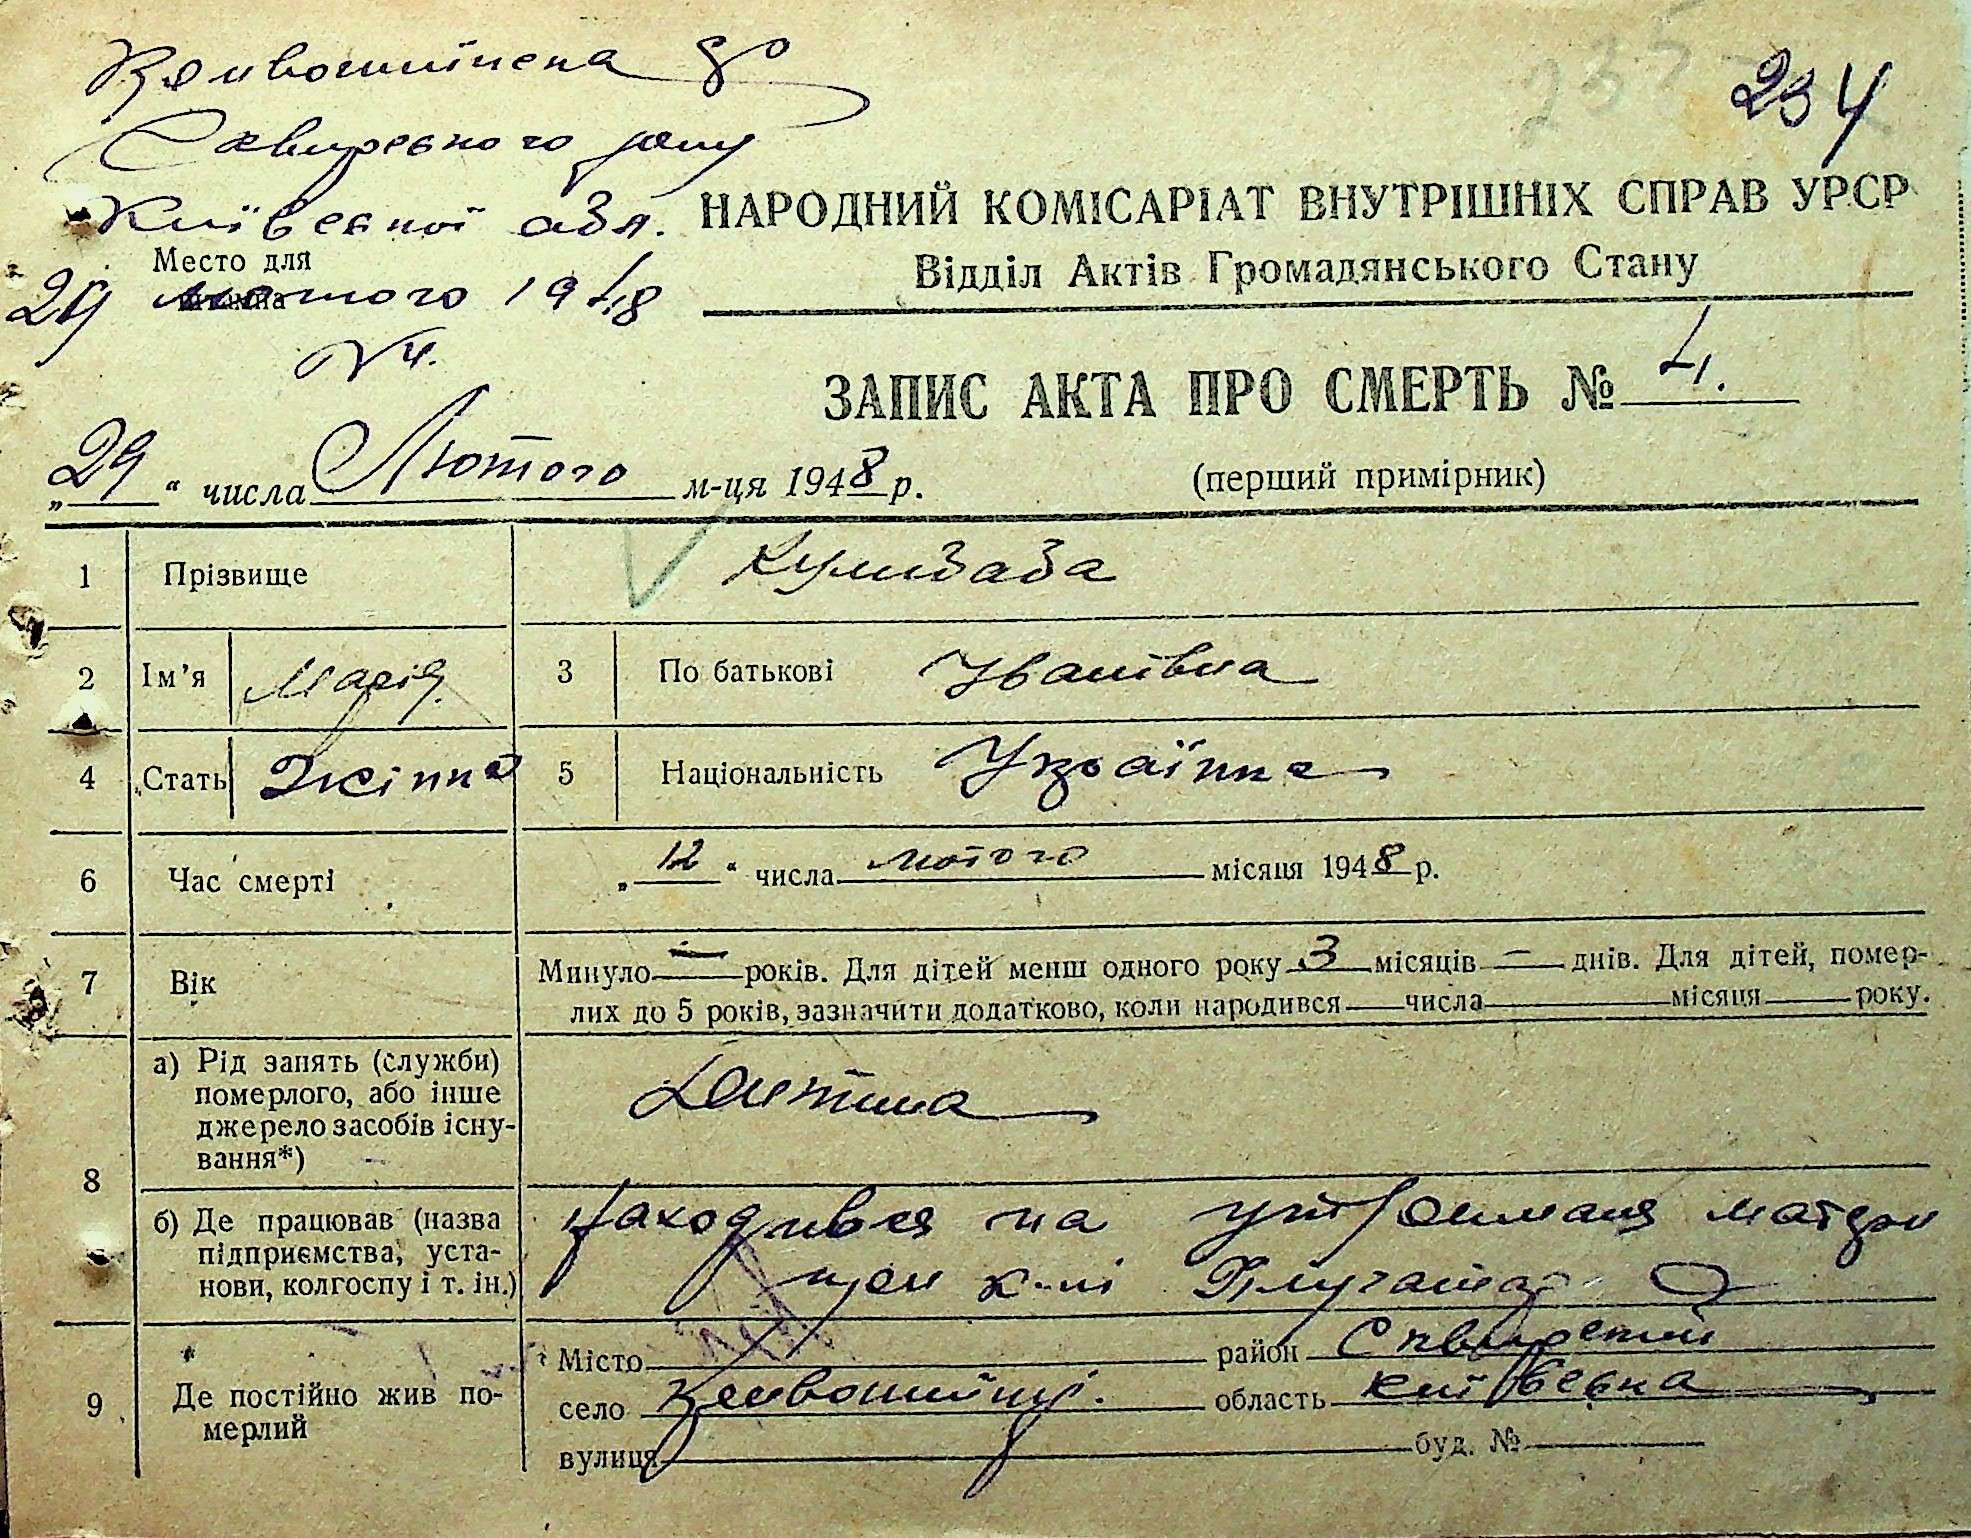 Кривошиїнська
Сквирського р-ну
Київської обл.
Место для
29 лютого 1948
№ 4.
235
234
НАРОДНИЙ КОМІСАРІАТ ВНУТРІШНІХ СПРАВ УРСР
Відділ Актів Громадянського Стану
ЗАПИС АКТА ПРО СМЕРТЬ № 4.
„29“ числа Лютого м-ця 1948 р.
(перший примірник)
1 Прізвище Кулибаба
2 Ім'я Марія. 3 По батькові Іванівна
4 Стать Жіноча 5 Національність Українка
6 Час смерті „12“ числа лютого місяця 1948 р.
7 Вік Минуло — років. Для дітей менш одного року 3 місяців — днів. Для дітей, помер-
лих до 5 років, зазначити додатково, коли народився числа місяця року.
8 а) Рід занять (служби)
померлого, або інше
джерело засобів існу-
вання*)
Дитина
б) Де працював (назва
підприємства, уста-
нови, колгоспу і т. ін.)
находився на утриманя матери
член к-пі Плугатар
9 Де постійно жив по-
мерлий
Місто район Сквирский
село Кривошиїнці. область Київська
вулиця буд. №